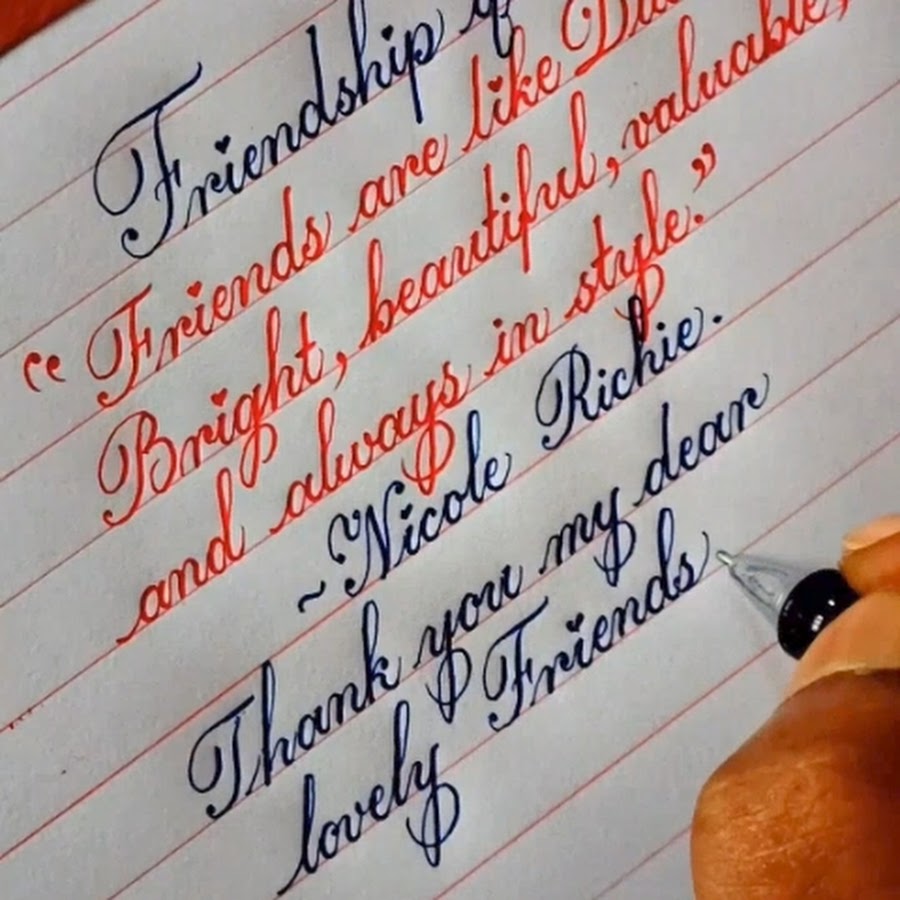 Friendship
“Friends are like
Bright, beautiful, valuable,
and always in style.”
~Nicole Richie.
Thank you my dear
lovely Friends